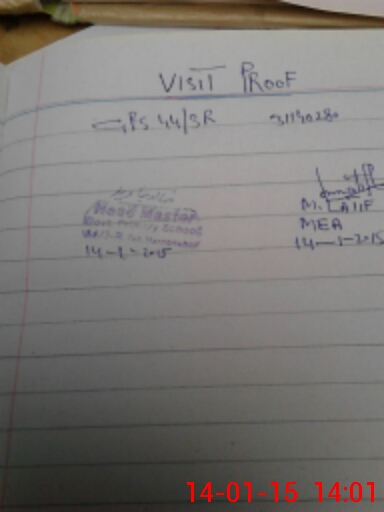 VISIT PROOF
PS 44/SR 31190280
Head Master
Govt Primary School
14-1-2015
M. LATIF
MEA
14-1-2015
14-01-15 14:01